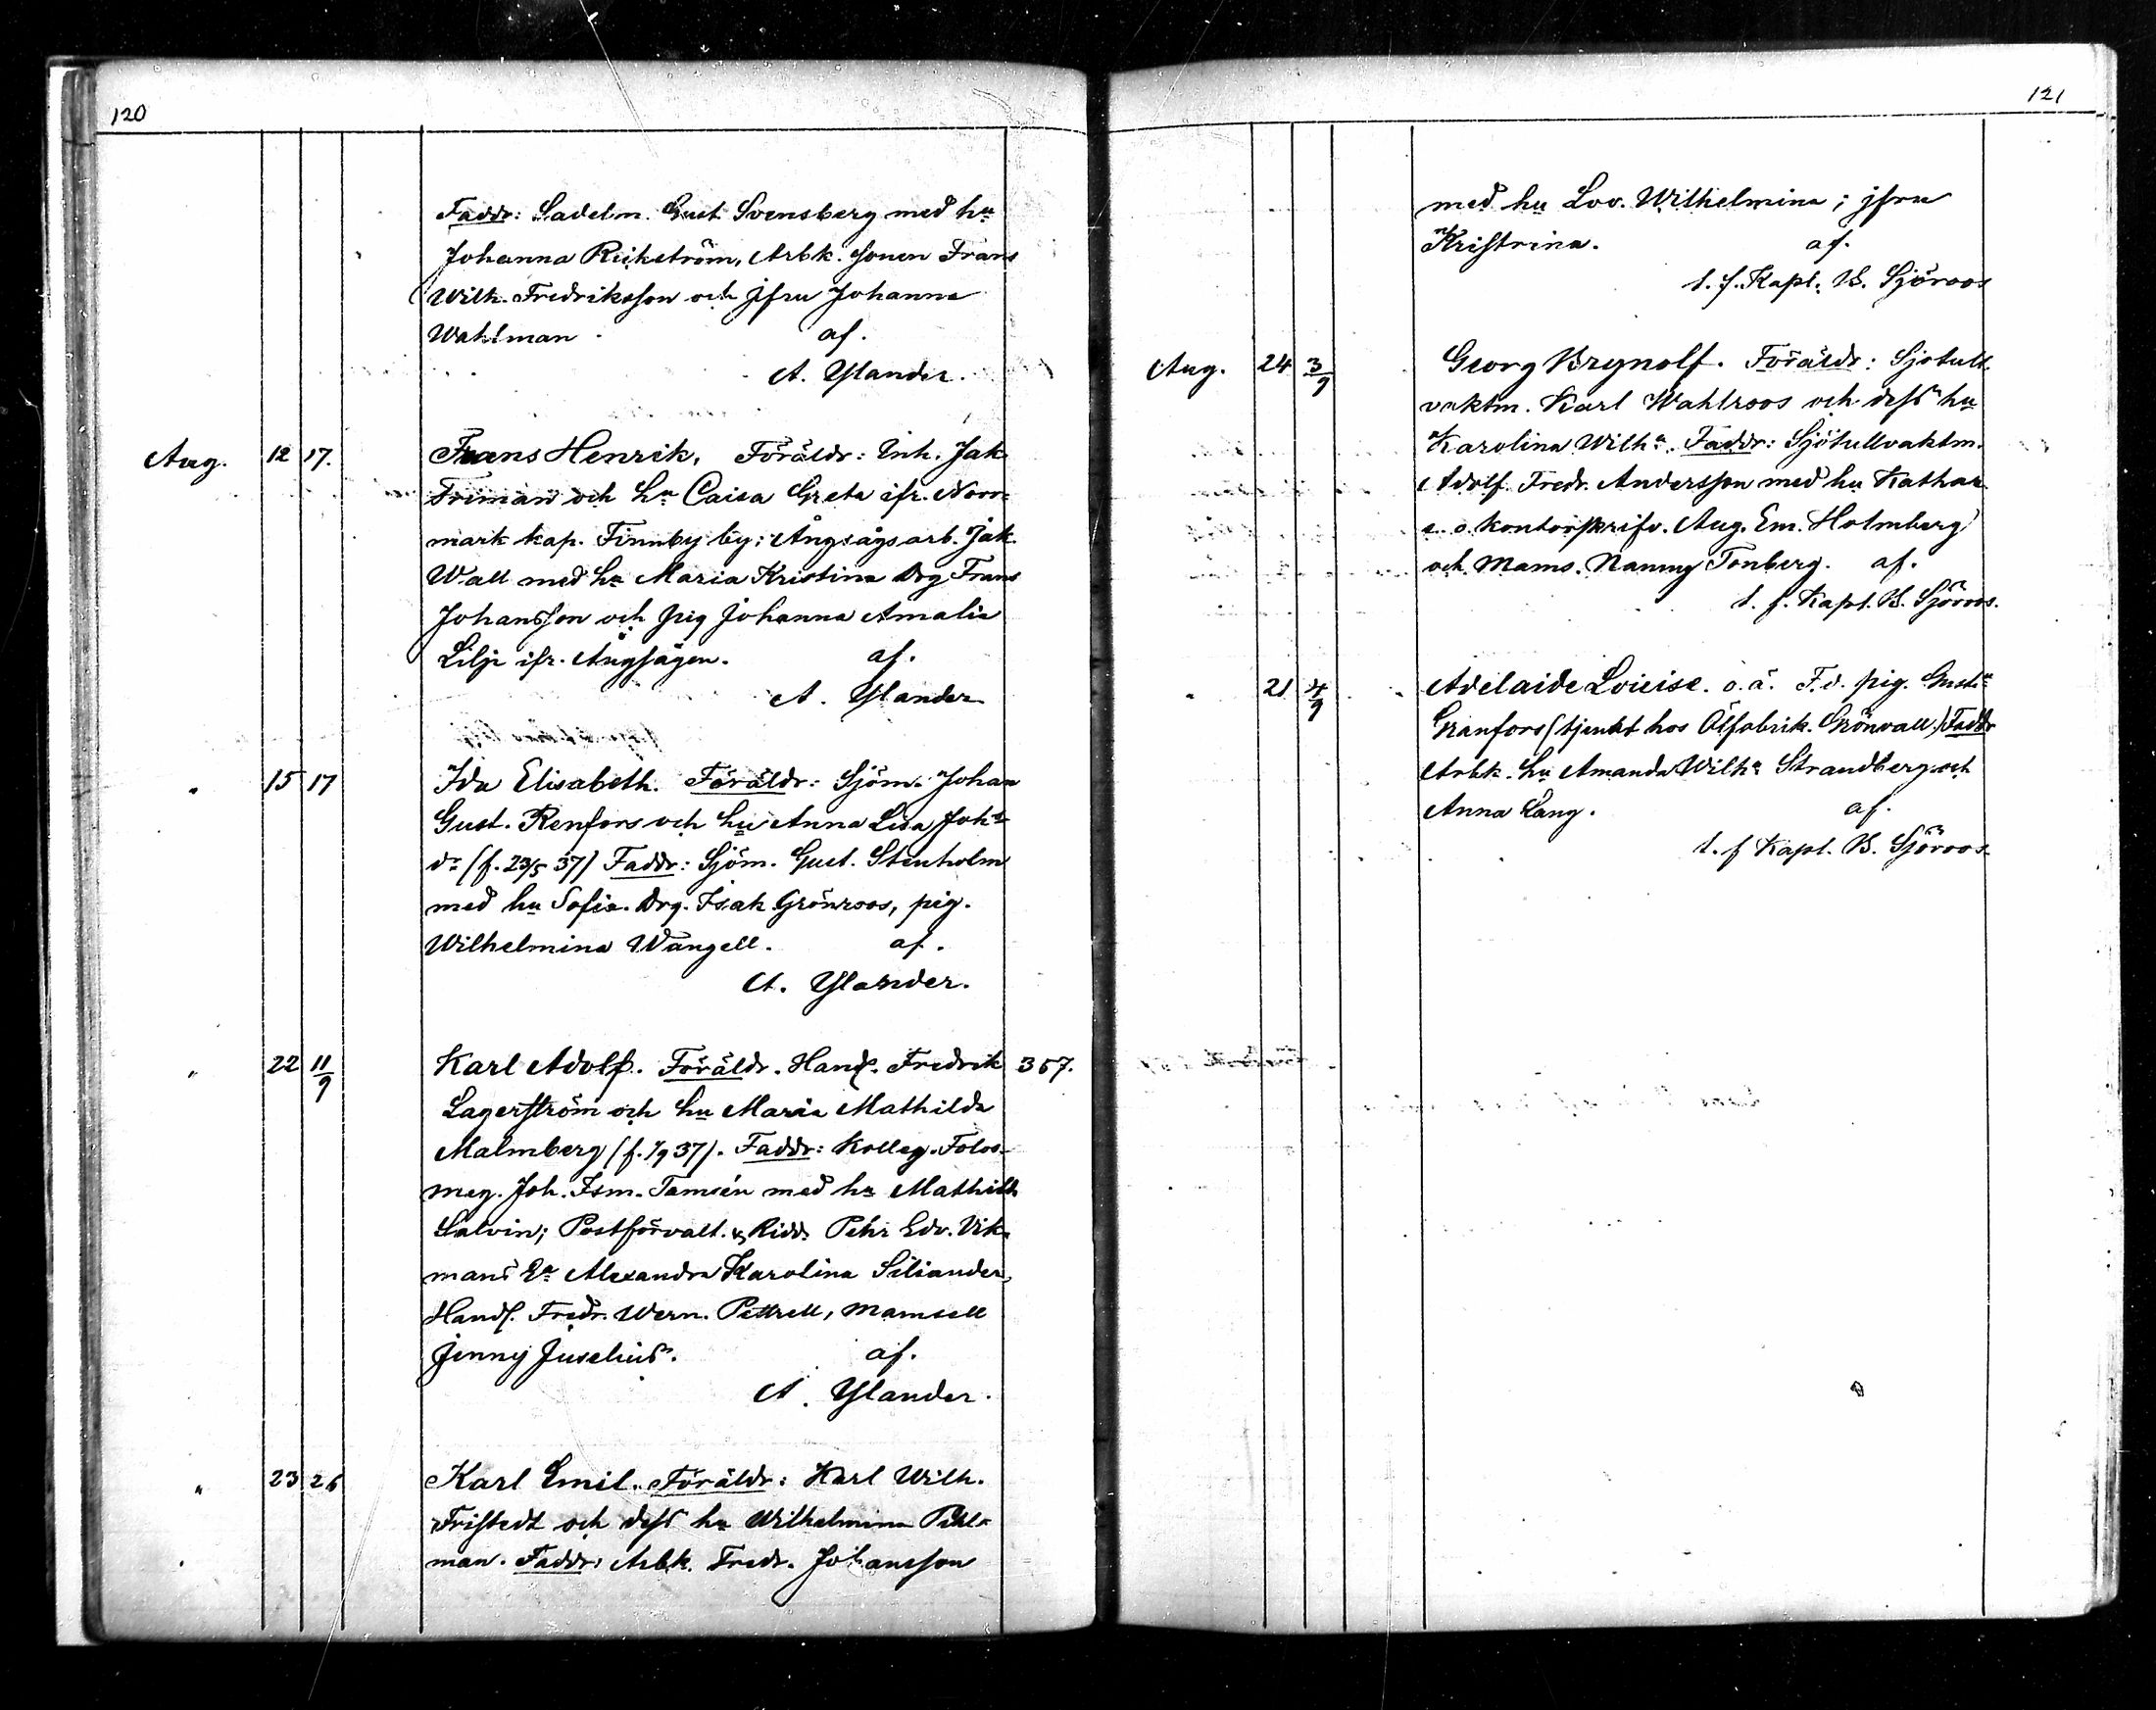 120
Faddr: Sadelm. Gust Svensberg med hu
Johanna Rickström, Arbk. sonen Frans
Wilh. Fredriksson och jfru Johanna
Wahlman af.
A. Ylander.
Aug. 12 17. Frans Henrik. Föräldr: Inh. Jak
Friman och hu Caisa Greta ifr. Norr-
mark kap. Finnby by; Ångsågsarb. Jak.
Wall med hu Maria Kristina Drg Frans
Johansson och pig Johanna Amalia
Lilja ifr. Ångsågen. af.
A. Ylander
" 15 17 Ida Elisabeth. Föräldr: Sjöm. Johan
Gust. Renfors och hu Anna Lisa Johs
dr (f. 23/5 37) Faddr: Sjöm. Gust. Stenholm
med hu Sofia. Drg. Isak Grönroos, pig.
Wilhelmina Wangell. af.
A. Ylander.
" 22 11/9 Karl Adolf. Föräldr. Handl. Fredrik 357.
Lagerström och hu Maria Mathilda
Malmberg (f. 1/9 37). Faddr: Kolleg.
Joh. Ism. Tamsén med hu Mathilda
Salvin; Postförvalt. & Ridd. Pehr Edv. Vik-
mans Ea Alexandra Karolina Siliander,
Handl. Fredr. Wern. Pettrell, Mamsell
Jenny Juselius. af.
A. Ylander.
" 23 26 Karl Emil. Föräldr: Karl Wilh.
Fristedt och dess hu Wilhelmina Pihl-
man. Faddr: Arbk. Fredr. Johansson
121
med hu Lov. Wilhelmina; jfru
Kristrina. af.
t. f. Kapl. B. Sjöroos
Aug. 24 3/9 Georg Brynolf. Föräldr: Sjötull-
vaktm. Karl Wahlroos och dess hu
Karolina Wilha. Faddr: Sjötullvaktm.
Adolf Fredr. Andersson med hu Kathar.
e. o. kontorskrifv. Aug. Em. Holmberg
och Mams. Nanny Tonberg. af.
t. f. Kapl. B. Sjöroos.
" 21 4/9 Adelaide Lovise. o. ä. F. d. pig. Gusta
Granfors (tjenst hos Ölfabrik. Grönvall) Faddr
Arbk. hu Amanda Wilha Strandberg och
Anna Lang. af.
t. f Kapl. B. Sjöroos